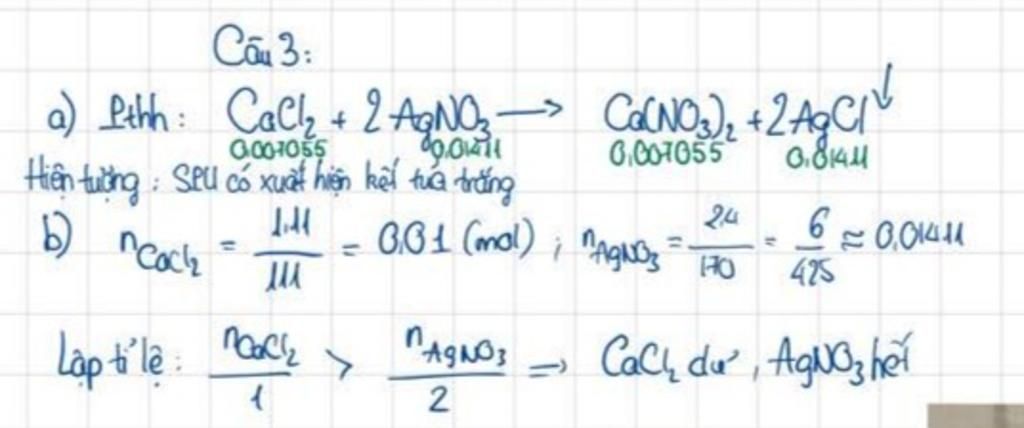 Câu 3:
a) Pthh: CaCl₂ + 2AgNO₃ → Ca(NO₃)₂ + 2AgCl↓
0,007055 0,01411 0,007055 0,01411
Hiện tượng: SPU có xuất hiện kết tủa trắng
b) nCaCl₂ = 1,11/111 = 0,01 (mol) ; nAgNO₃ = 2,4/170 = 6/425 ≈ 0,01411
Lập tỉ lệ: nCaCl₂/1 > nAgNO₃/2 => CaCl₂ dư, AgNO₃ hết